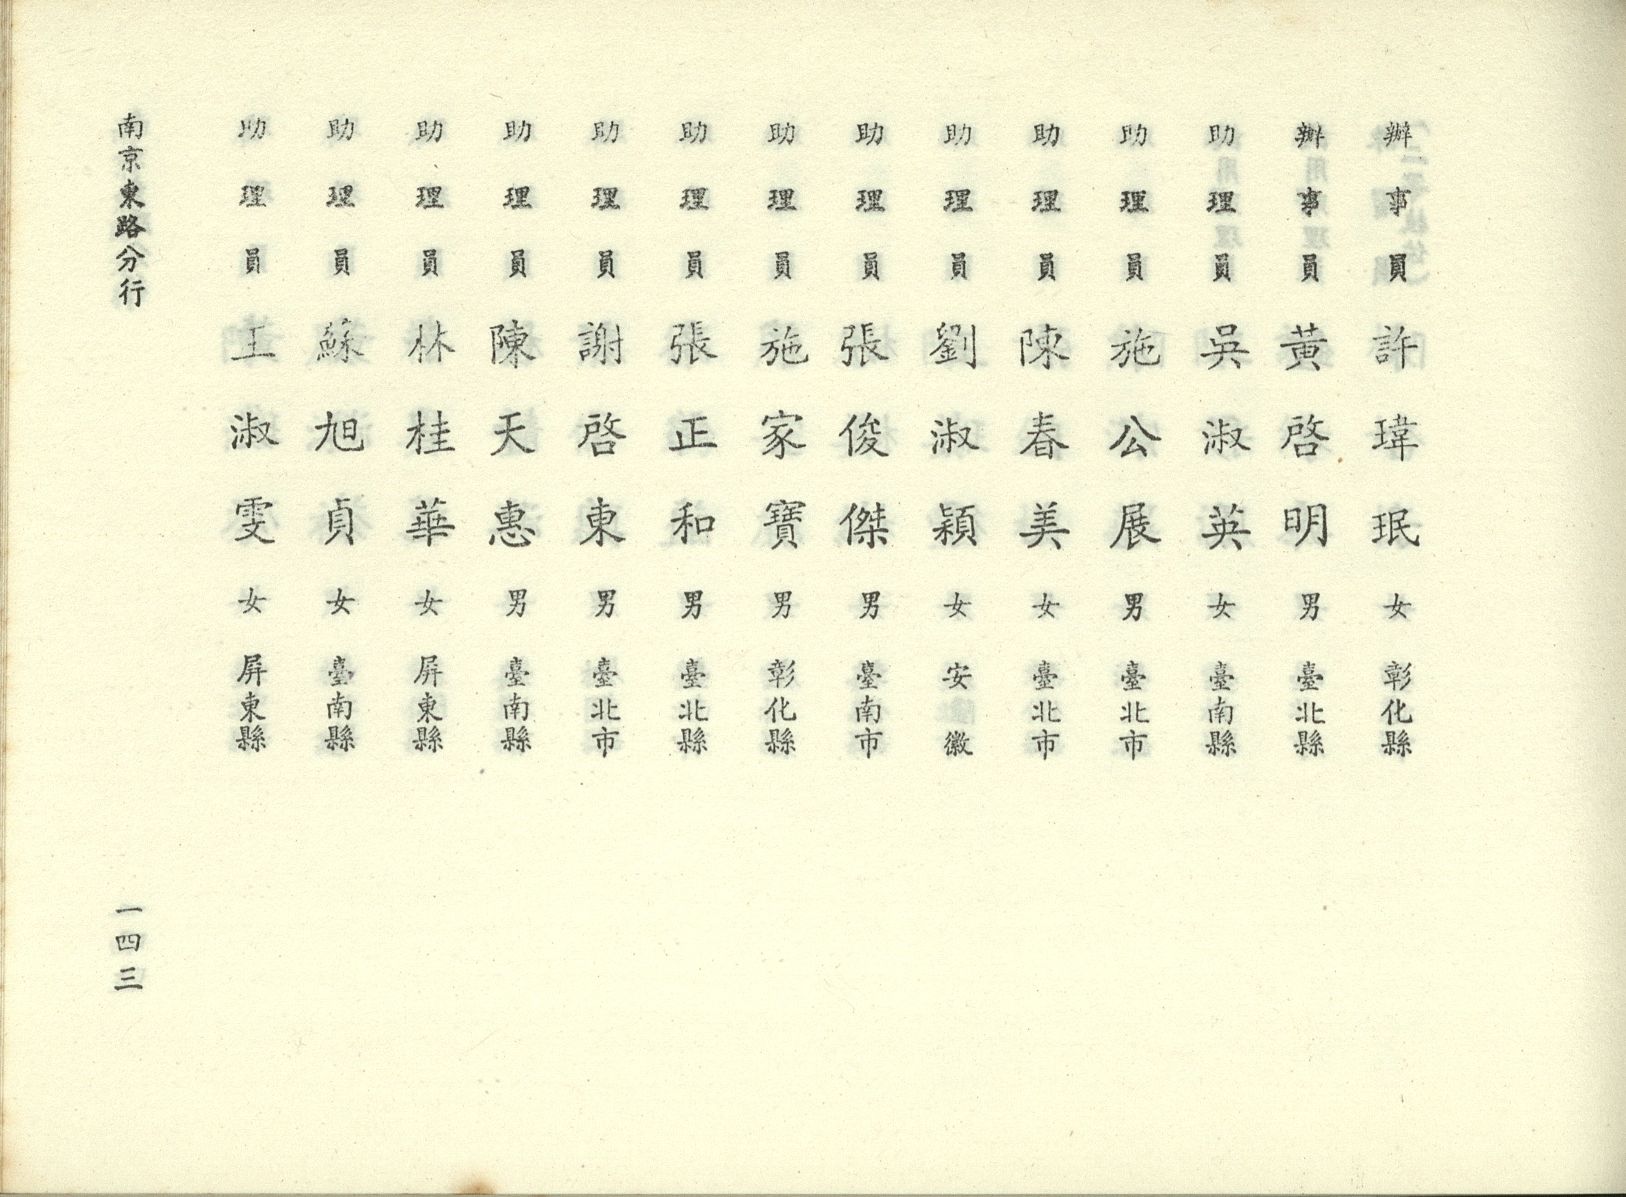 辦事員 許瑋珉 女 彰化縣
辦事員 黃啓明 男 臺北縣
助理員 吳淑英 女 臺南縣
助理員 施公展 男 臺北市
助理員 陳春美 女 臺北市
助理員 劉淑穎 女 安徽
助理員 張俊傑 男 臺南市
助理員 施家寶 男 彰化縣
助理員 張正和 男 臺北縣
助理員 謝啓東 男 臺北市
助理員 陳天惠 男 臺南縣
助理員 林桂華 女 屏東縣
助理員 蘇旭貞 女 臺南縣
助理員 王淑雯 女 屏東縣
南京東路分行
一四三